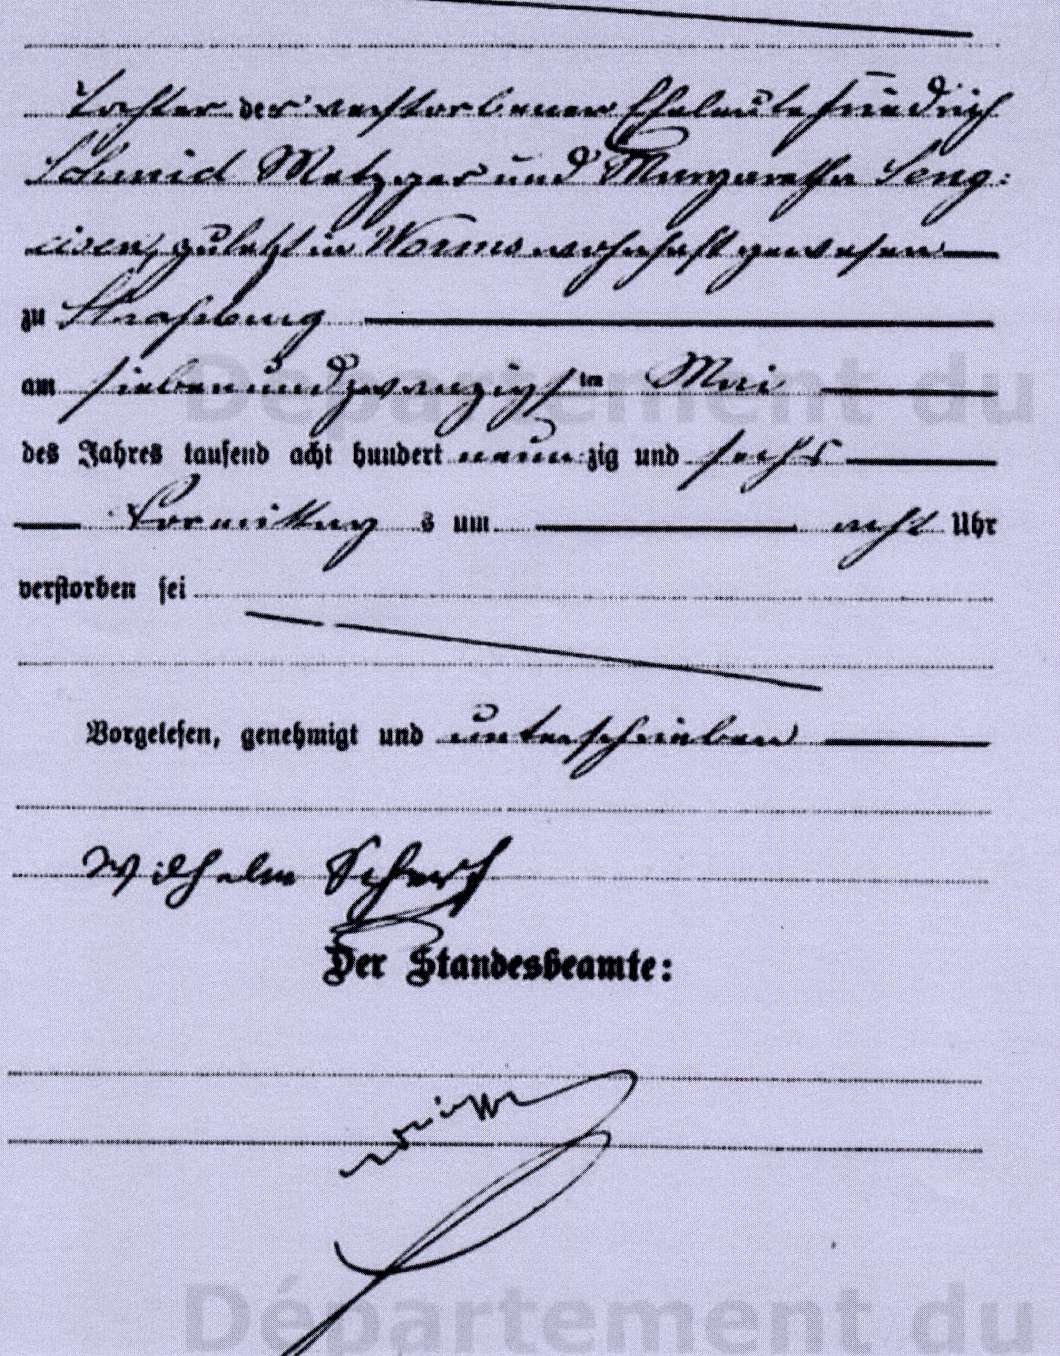 Tochter der verstorbenen Eheleute Friedrich
Schmid Metzger und Margaretha Seng:
eisen, zuletzt in Worms wohnhaft gewesen
zu Straßburg
am siebenundzwanzigsten Mai
Département du
des Jahres tausend acht hundert neunzig und sechs
Vormittags um acht Uhr
verstorben sei
Vorgelesen, genehmigt und unterschrieben
Wilhelm
Der Standesbeamte:
Département du